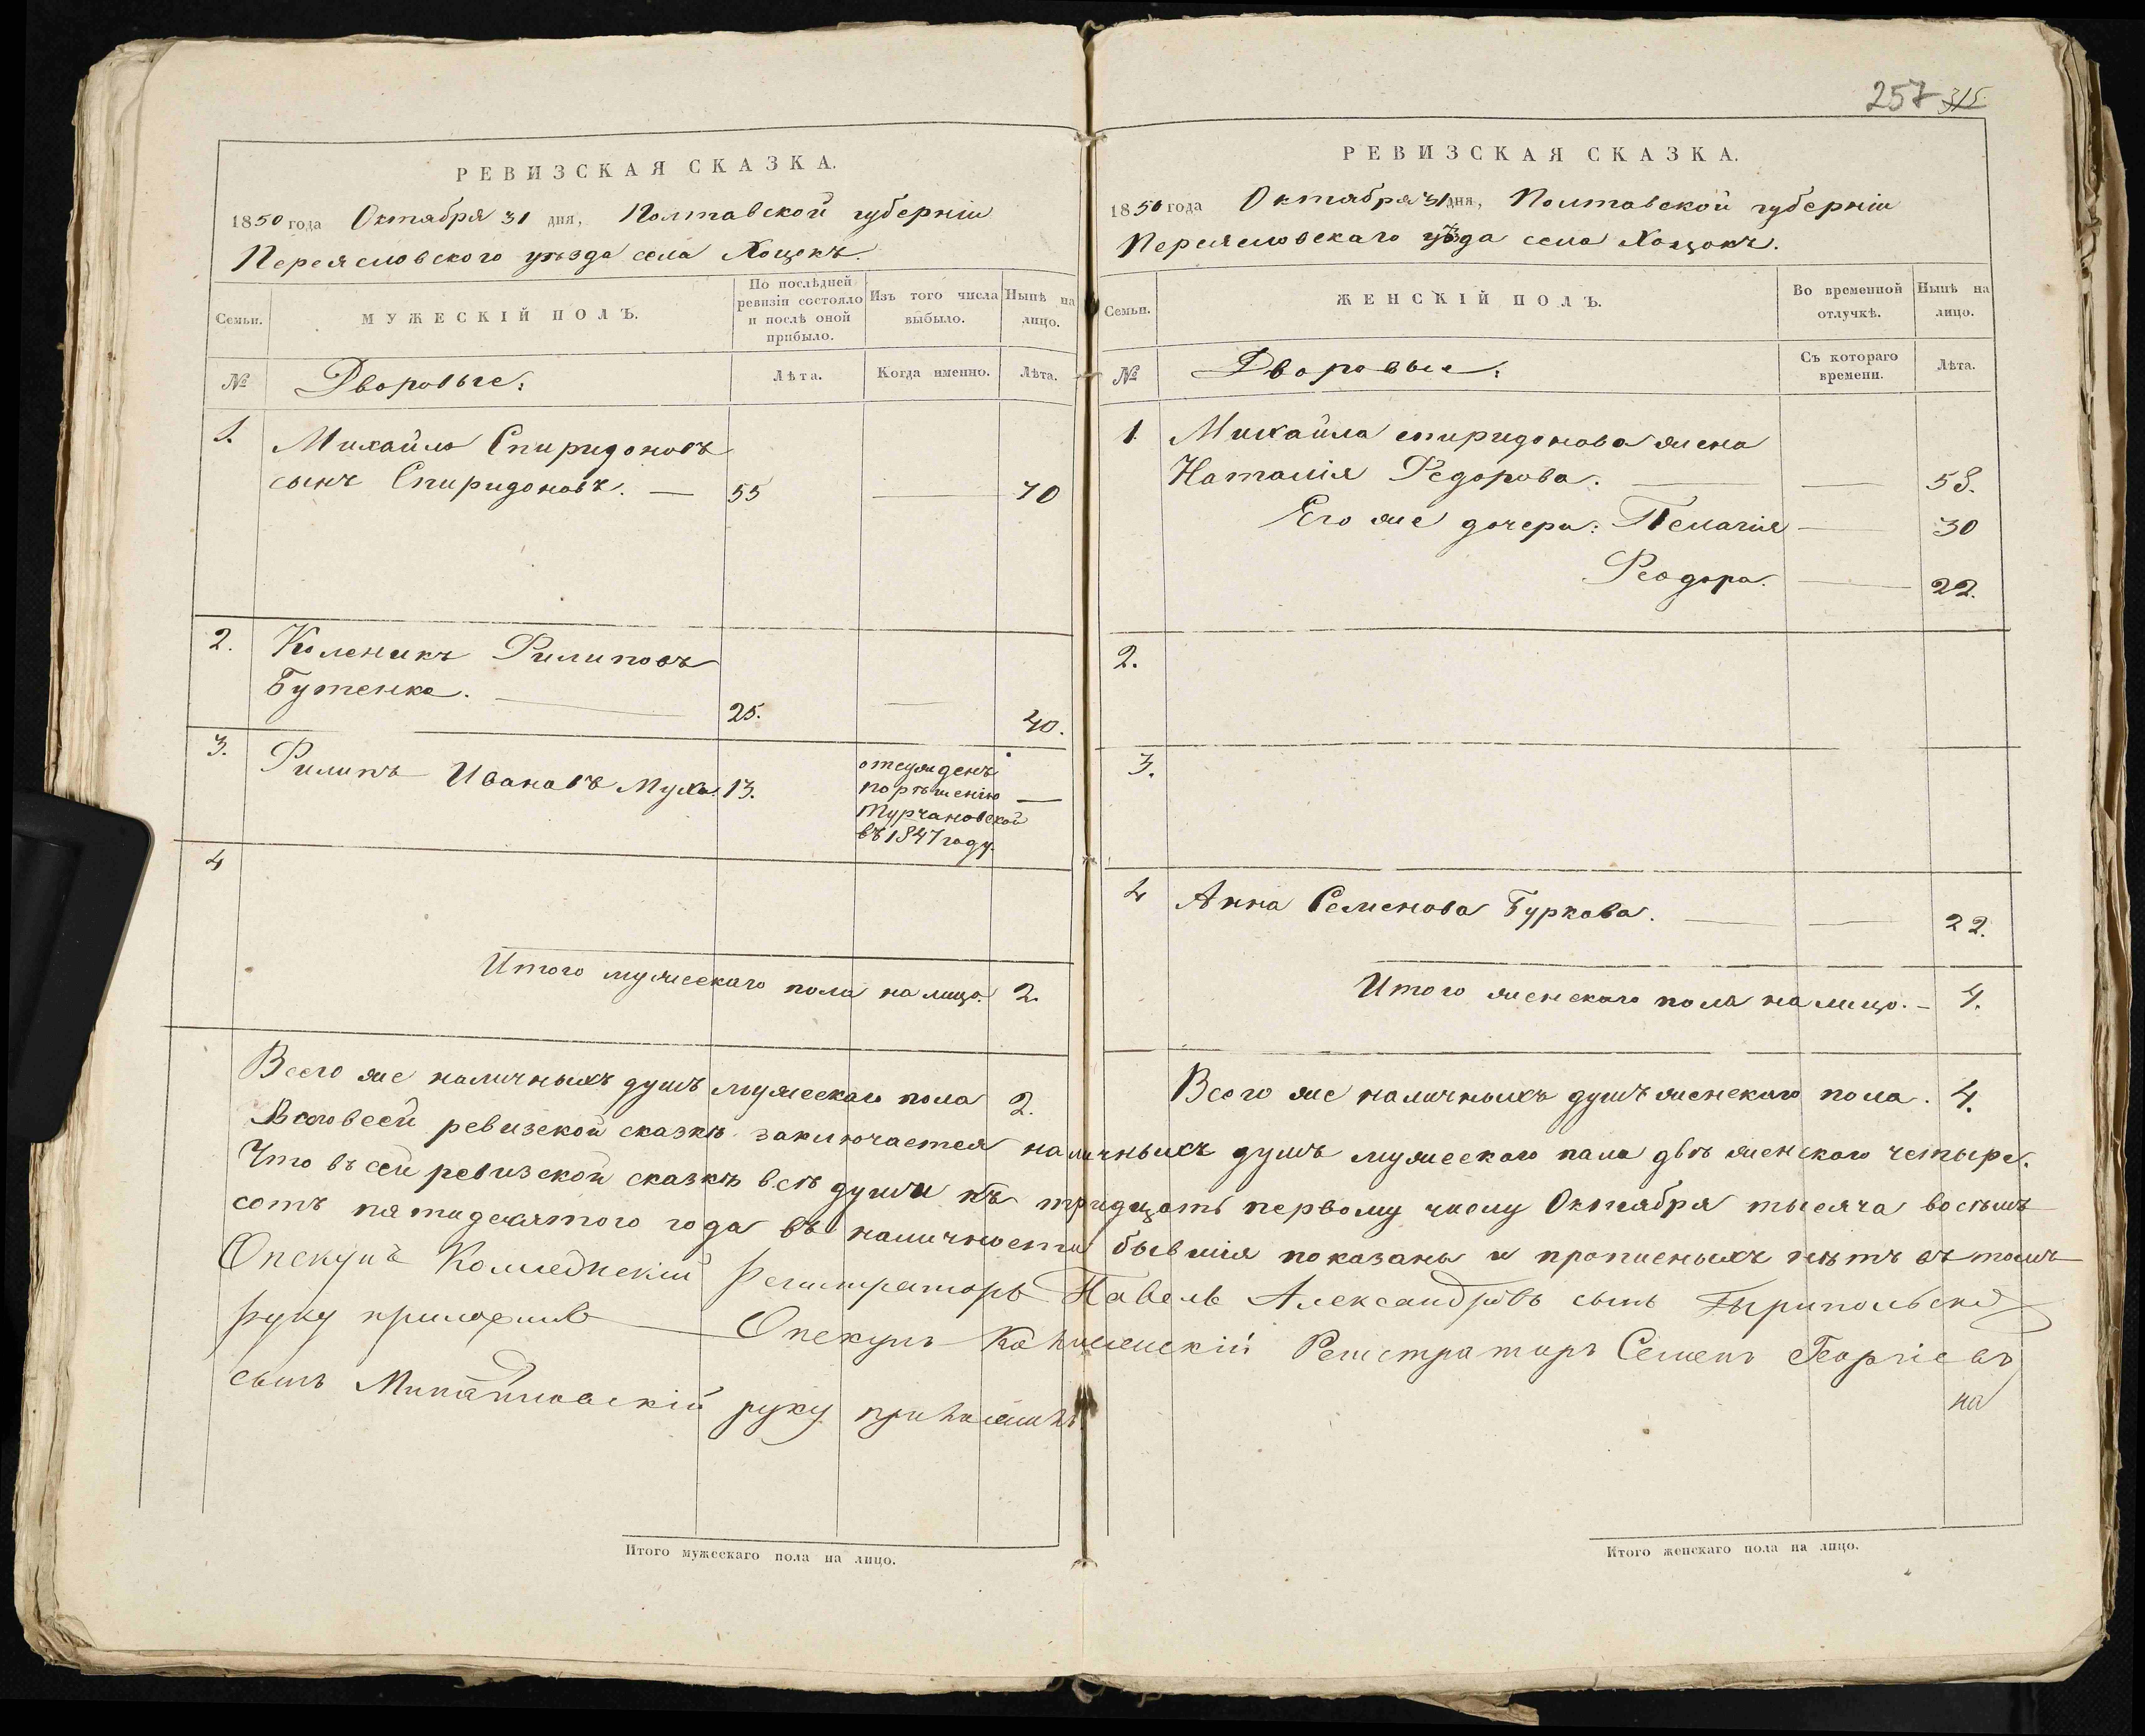 РЕВИЗСКАЯ СКАЗКА.
1850 года Октября 31 дня, Полтавской губерніи
Переясловского уѣзда села Хоцокъ.
Семьи.
МУЖЕСКІЙ ПОЛЪ.
По послѣдней ревизіи состояло и послѣ оной прибыло.
Изъ того числа выбыло.
Нынѣ на лицо.
№
Дворовые:
Лѣта.
Когда именно.
Лѣта.
1. Михайло Спиридоновъ
сынъ Спиридоновъ. — 55 — 70
2. Коленикъ Филиповъ
Бутенко. — 25. — 40.
3. Филипъ Ивановъ Муха. 13.
отсужденъ
порѣшенію —
Турчановской
въ 1847 году.
4
Итого мужескаго пола на лицо. 2.
Всего же наличныхъ душъ мужескаго пола 2.
257 315
РЕВИЗСКАЯ СКАЗКА.
1850 года Октября 31 дня, Полтавской губерніи
Переясловскаго уѣзда села Хоцокъ.
Семьи.
ЖЕНСКІЙ ПОЛЪ.
Во временной отлучкѣ.
Нынѣ на лицо.
№
Дворовые:
Съ котораго времени.
Лѣта.
1. Михайла спиридонова жена
Наталія Федорова. — — 58.
Его же дочери: Пелагія — 30
Феодора. — 22.
2.
3.
4 Анна Семенова Буркова. — — 22.
Итого женскаго пола на лицо. — 4.
Всего же наличныхъ душъ женскаго пола. 4.
ревизской сказкѣ заключается наличныхъ душъ мужескаго пола двѣ женского четыре.
Что въ сей ревизской сказкѣ всѣ души къ тридцать первому числу Октября тысяча восѣмъ
сотъ пятидесятого года въ наличности бывшія показаны и прописныхъ нѣтъ въ томъ
Опекунъ Коллежскій Регистраторъ Павелъ Александровъ сынъ
руку приложилъ — Опекунъ Коллежскій Регистраторъ Семенъ Георгіевъ
сынъ руку приложилъ.
на
Итого мужескаго пола на лицо.
Итого женскаго пола на лицо.